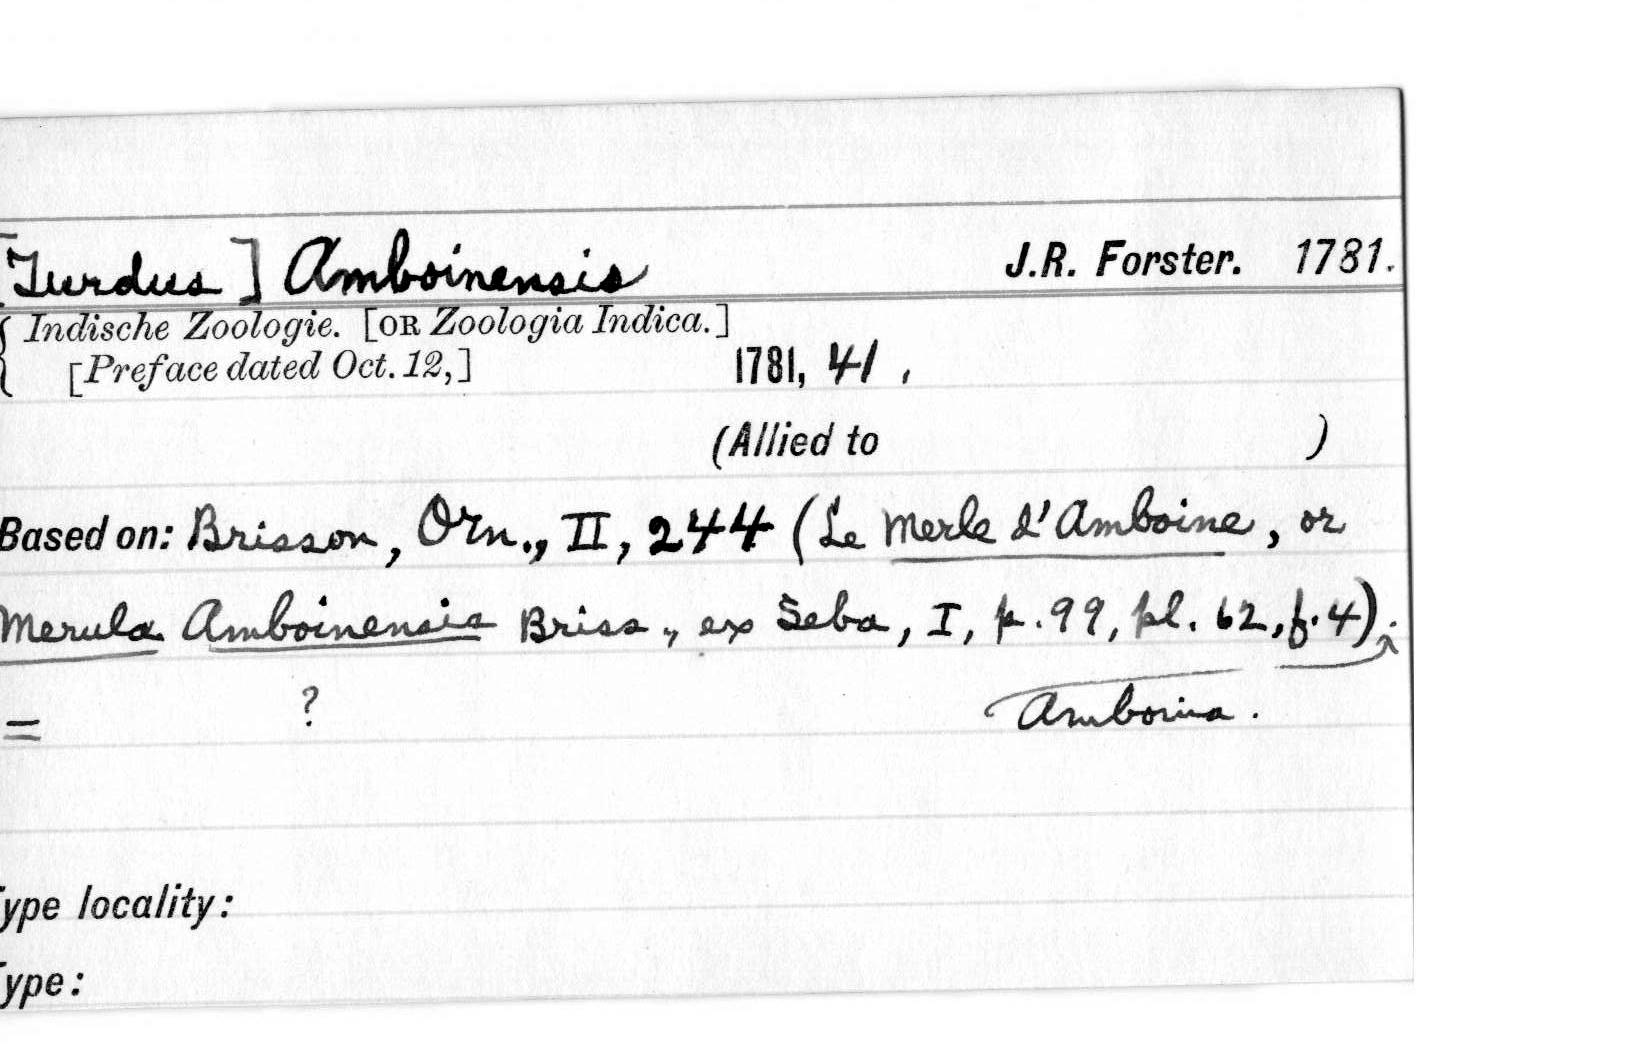 [Turdus] Amboinensis J.R. Forster. 1781.
{ Indische Zoologie. [OR Zoologia Indica.]
[Preface dated Oct. 12,] 1781, 41,
(Allied to )
Based on: Brisson, Orn., II, 244 (Le Merle d'Amboine, or
Merula Amboinensis Briss., ex Seba, I, p. 99, pl. 62, f. 4).
= ? Amboina.
ype locality:
ype: